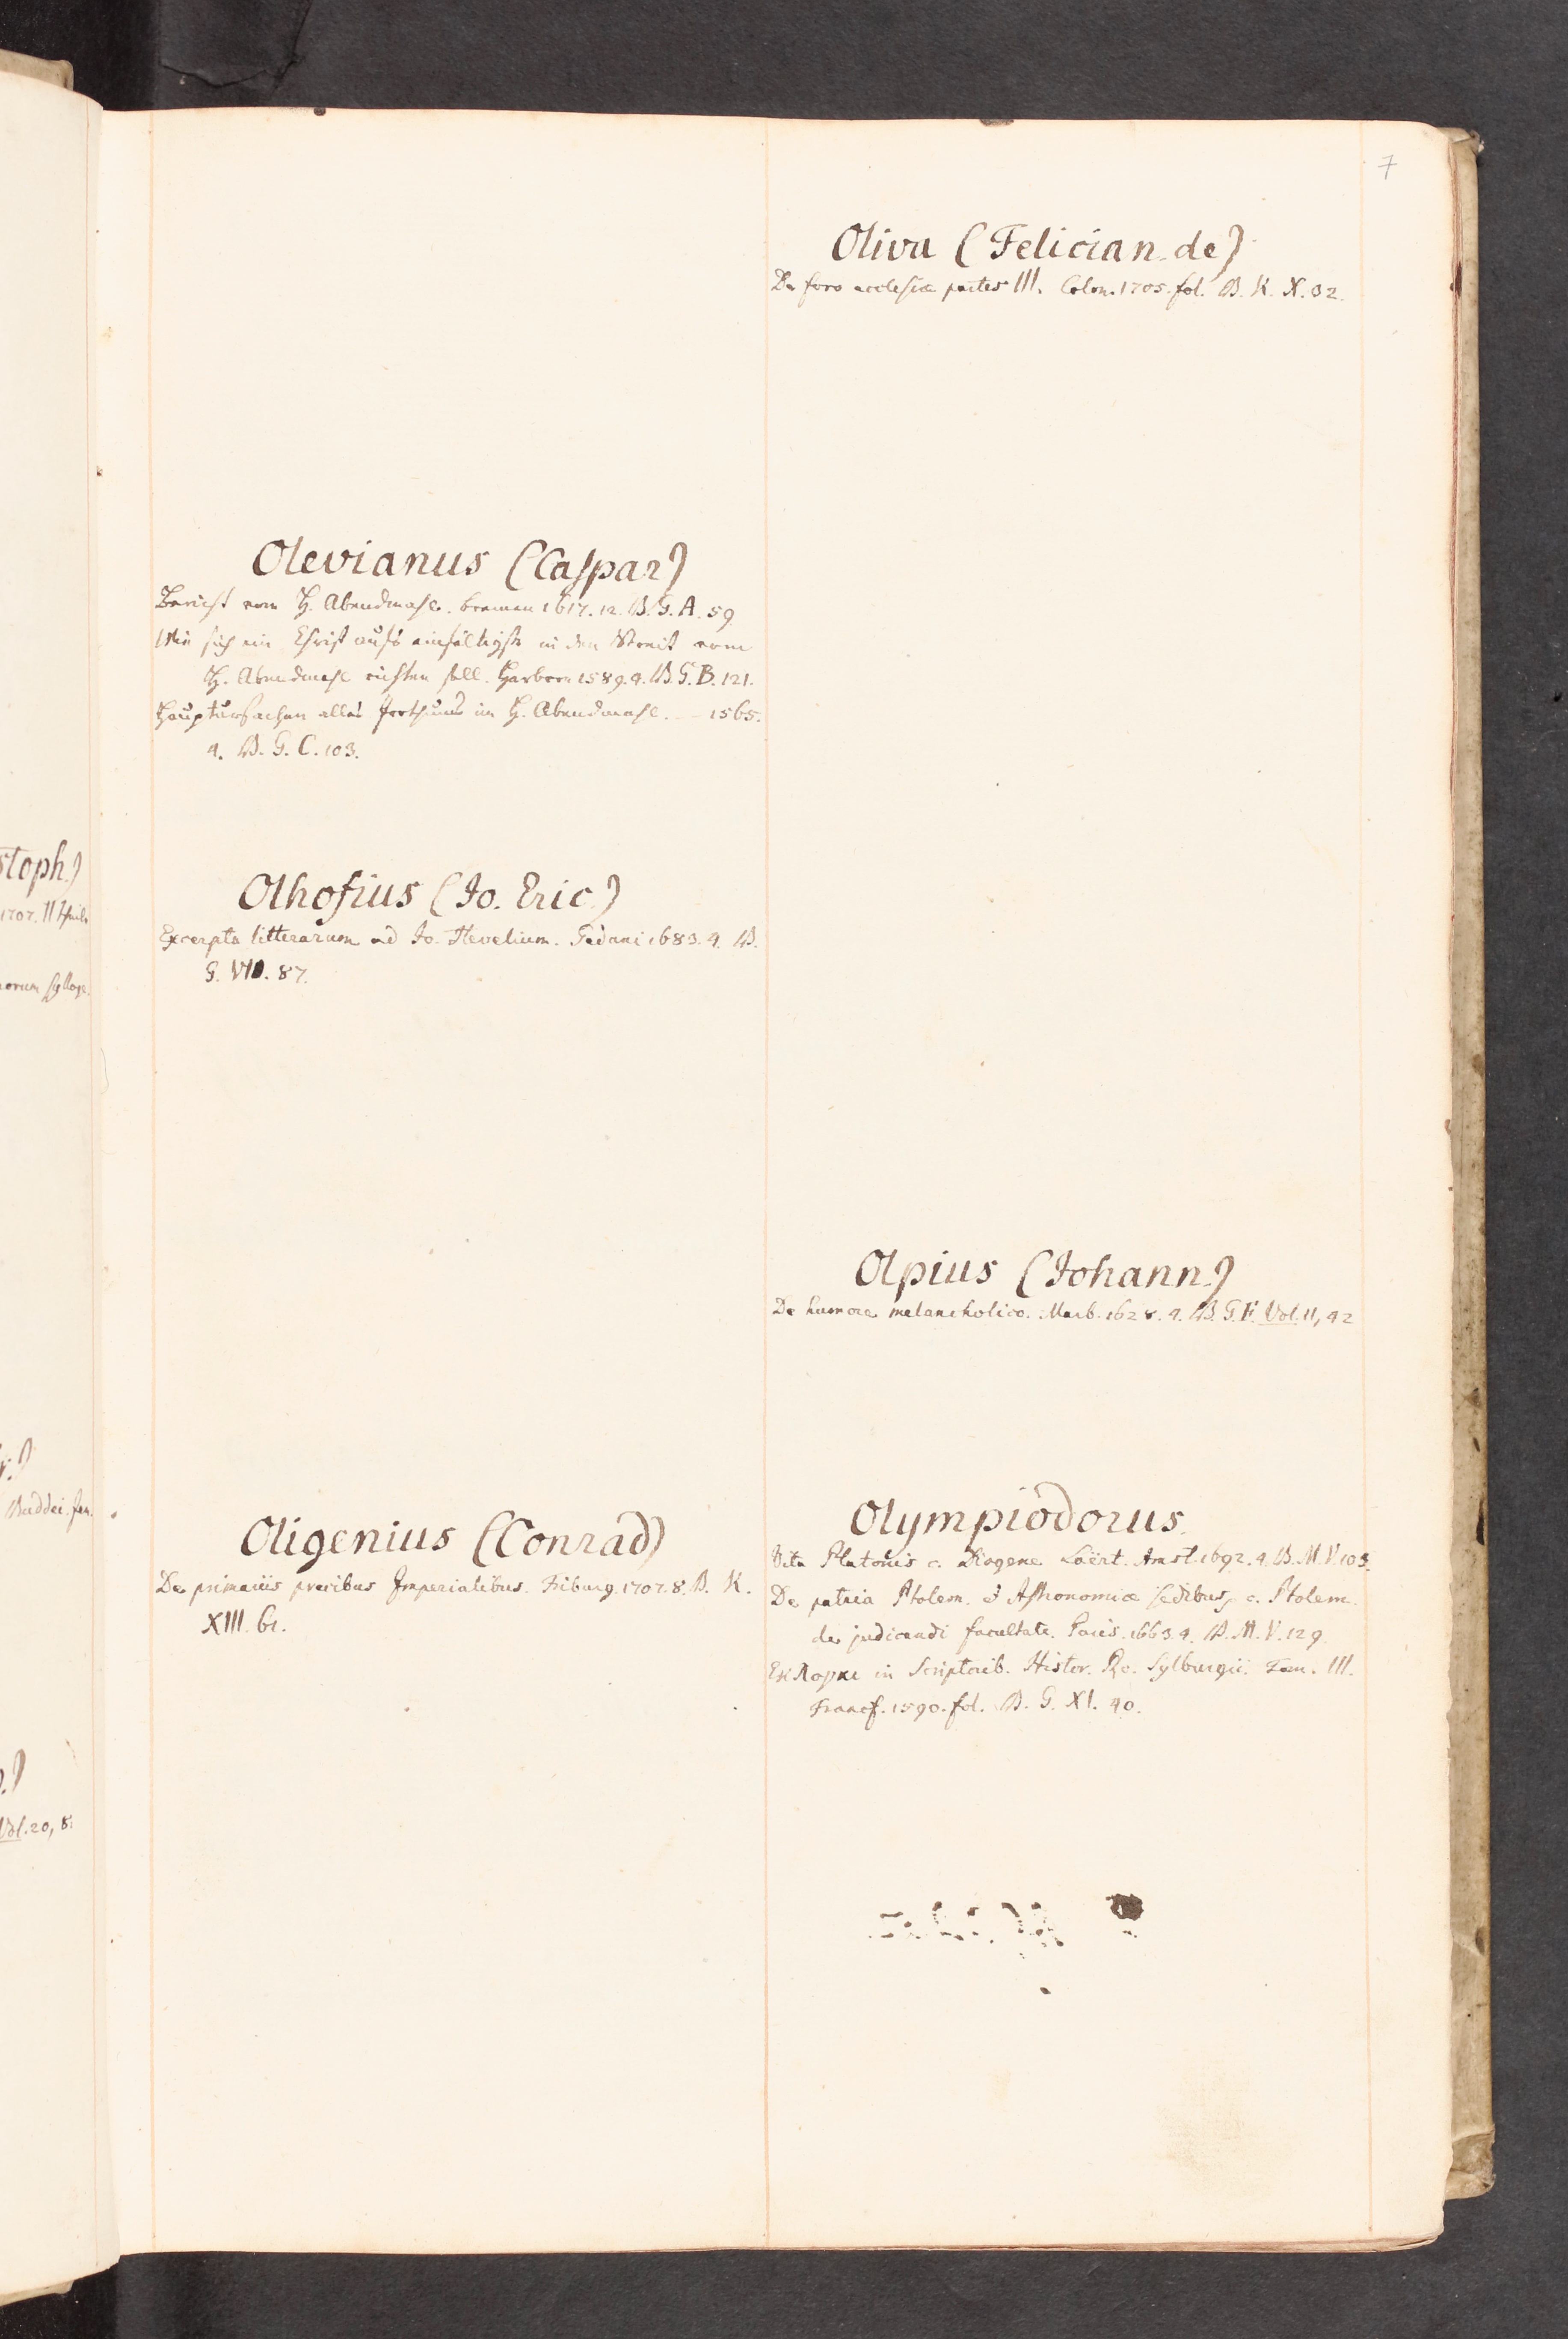 7
Olevianus (Caspar)
Bericht vom H. Abendmahl. Bremen 1617. 12. B. G. A. 59
Wie sich ein Christ aufs einfältigste in den Streit vom
H. Abendmahl richten soll. Herborn 1589. 4. B. G. B. 121.
Hauptursachen alles Irrthums im H. Abendmahl. — 1565.
4. B. G. C. 103.
Olhofius (Jo. Eric.)
Excerpta litterarum ad Jo. Hevelium. Gedani 1683. 4. B.
G. 87.
Oligenius (Conrad)
De primariis precibus Imperialibus. Friburg. 1707. 8. B. K.
XIII. 61.
Oliva (Felician. de)
De foro ecclesiæ partes III. Colon. 1705. fol. B. K. X. 32.
Olpius (Johann.)
De humore melancholico. Marb. 1628. 4. B. G. F. Vol. 11, 42
Olympiodorus.
Vita Platonis c. Diogene Laërt. Amst. 1692. 4. B. M. V. 103.
De patria Ptolem. & Astronomiæ sedibus, c. Ptolem.
de judicandi facultate. Paris. 1663. 4. B. M. V. 129.
in Scriptorib. Histor. Ro. Sylburgii. Tom. III.
Francf. 1590. fol. B. G. XI. 40.
stoph.)
1707. II
orum sylloge.
Buddei.
Vol. 20, 8.